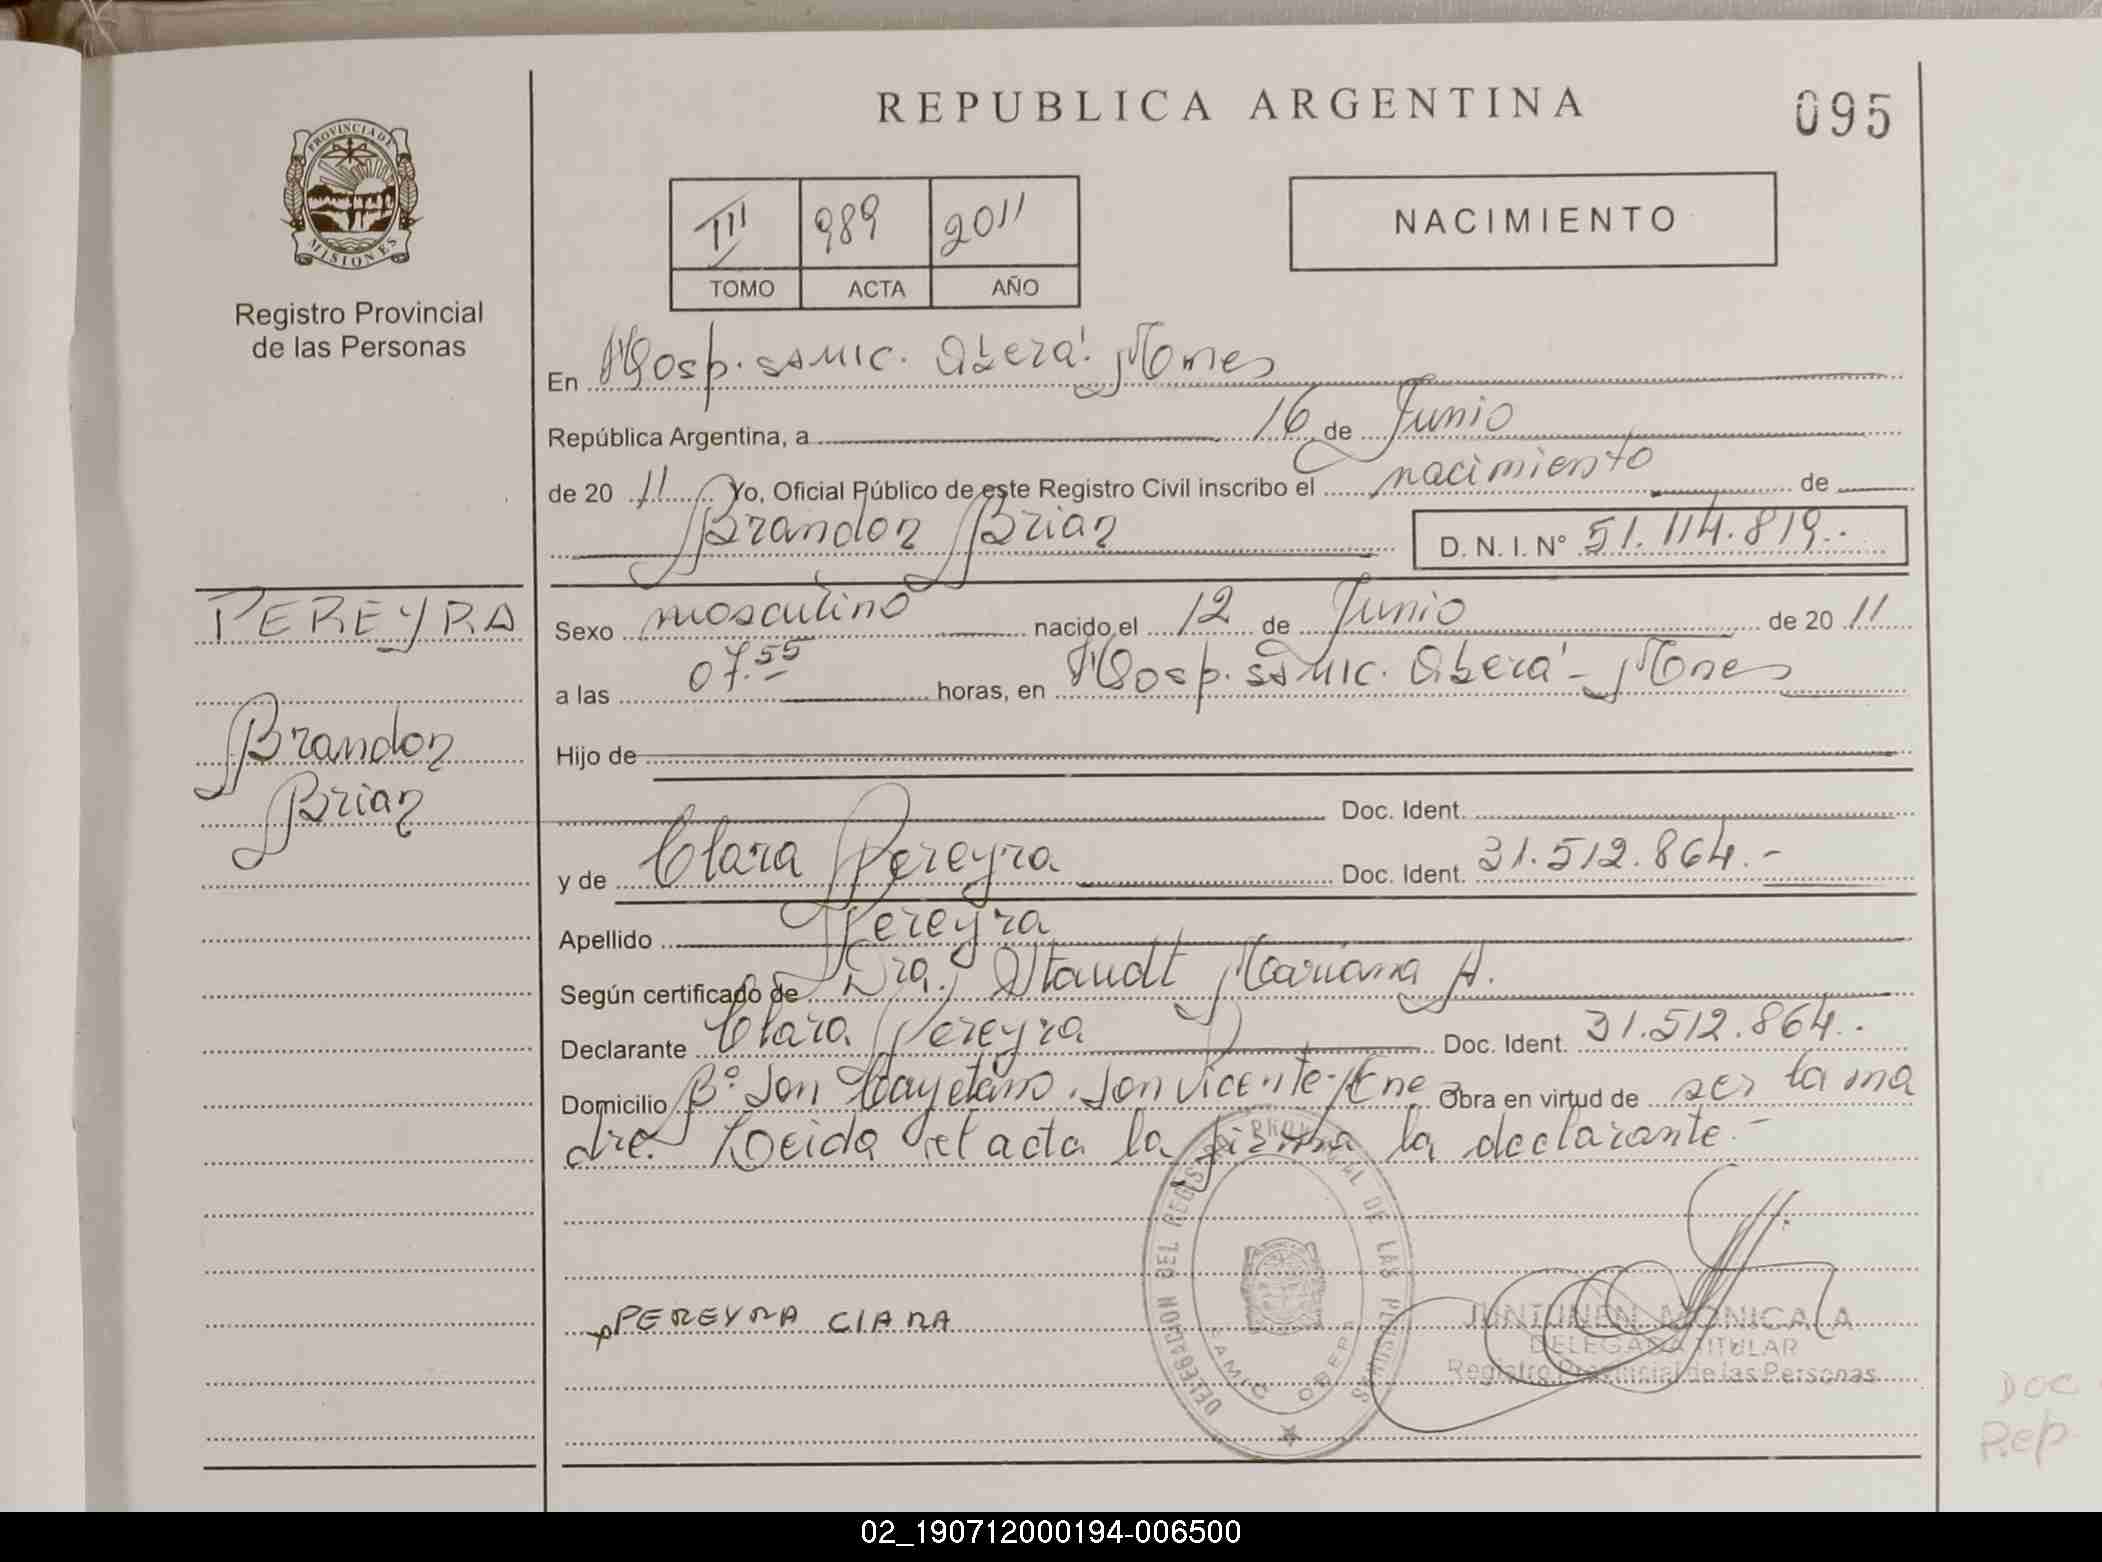 REPUBLICA ARGENTINA
095
PROVINCIA DE
MISIONES
Registro Provincial
de las Personas
III 989 2011
TOMO ACTA AÑO
NACIMIENTO
En Hosp. SAMIC. Oberá. Mones
República Argentina, a 16 de Junio
de 20 11 Yo, Oficial Público de este Registro Civil inscribo el nacimiento de
Brandon Brian D. N. I. Nº 51.114.819.-
PEREYRA
Brandon
Brian
Sexo masculino nacido el 12 de Junio de 20 11
a las 07.55 horas, en Hosp. SAMIC. Oberá - Mones
Hijo de
Doc. Ident.
y de Clara Pereyra Doc. Ident. 31.512.864.-
Apellido Pereyra
Según certificado de Dra. Staudt Mariana A.
Declarante Clara Pereyra Doc. Ident. 31.512.864.-
Domicilio Bº San Cayetano. San Vicente- Obra en virtud de ser la ma
dre. Leida el acta la firma la declarante.-
PEREYRA CLARA
DELEGACION DEL REGISTRO PROVINCIAL DE LAS PERSONAS
SAMIC OBERA
JUNTUNEN MONICA A
DELEGADA TITULAR
Registro Provincial de las Personas
DOC
P.ep.
02_190712000194-006500